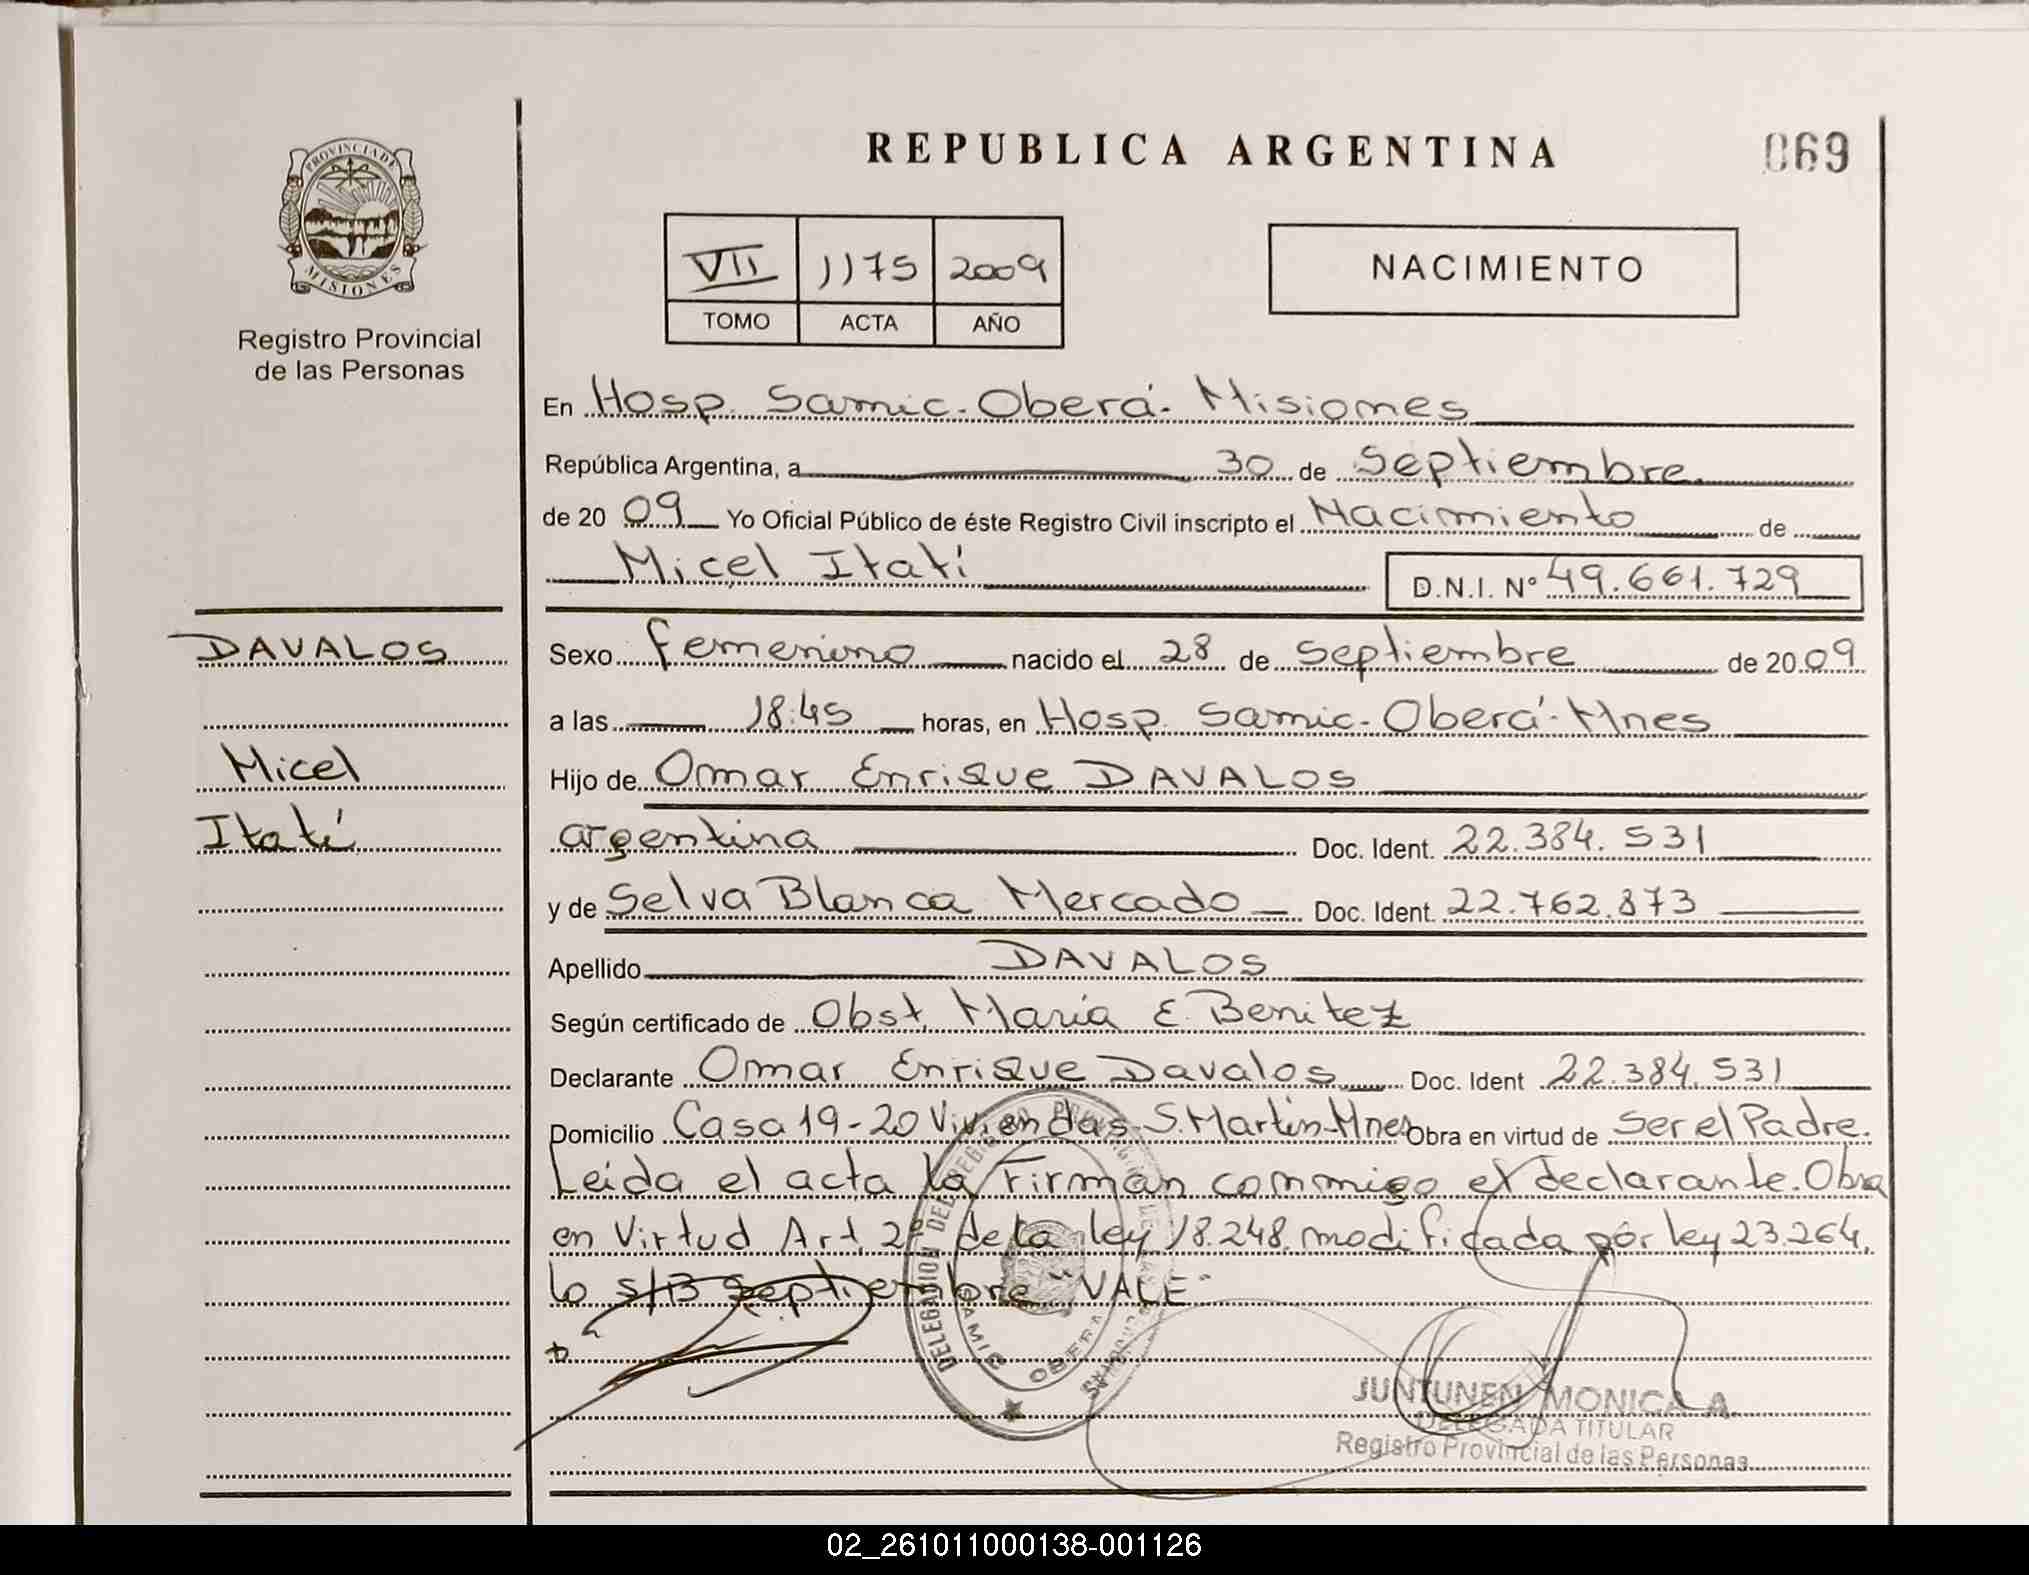 REPUBLICA ARGENTINA
069
PROVINCIA DE MISIONES
Registro Provincial
de las Personas
VII 1175 2009
TOMO ACTA AÑO
NACIMIENTO
En Hosp. Samic. Oberá. Misiones
República Argentina, a 30 de Septiembre
de 20 09 Yo Oficial Público de éste Registro Civil inscripto el Nacimiento de
Micel Itatí
D.N.I. N° 49.661.729
DAVALOS
Micel
Itatí
Sexo femenino nacido el 28 de Septiembre de 20 09
a las 18:45 horas, en Hosp. Samic. Oberá. Mnes
Hijo de Omar Enrique DAVALOS
argentina Doc. Ident. 22.384.531
y de Selva Blanca Mercado Doc. Ident. 22.762.873
Apellido DAVALOS
Según certificado de Obst. María E. Benitez
Declarante Omar Enrique Davalos Doc. Ident 22.384.531
Domicilio Casa 19-20 Viviendas. S. Martín Mnes Obra en virtud de ser el Padre.
Leída el acta la Firman conmigo el declarante. Obra
en Virtud Art. 2º de la ley 18.248 modificada por ley 23.264.
lo s/B Septiembre "VALE"
DELEGACION DEL REGISTRO
SAMIC OBERA
JUNTUNEN MONICA A.
DELEGADA TITULAR
Registro Provincial de las Personas
02_261011000138-001126